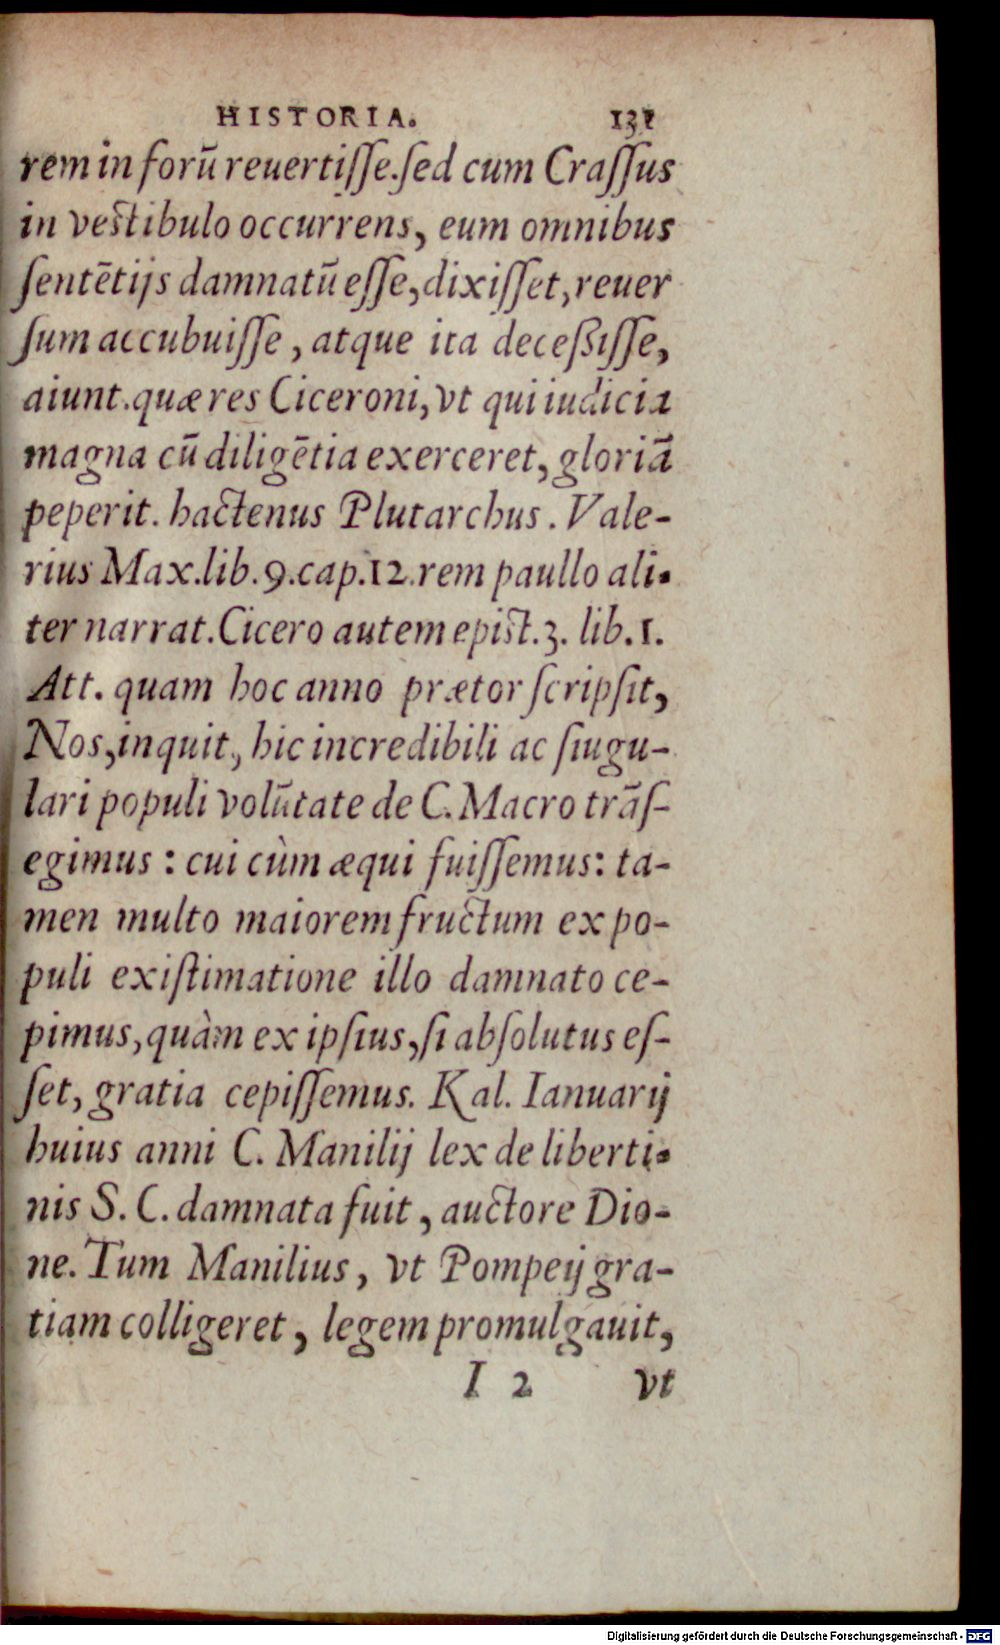 HISTORIA. 131
rem in forū reuertiſſe. ſed cum Craſſus
in veſtibulo occurrens, eum omnibus
ſentētijs damnatū eſſe, dixiſſet, reuer
ſum accubuiſſe, atque ita deceßiſſe,
aiunt. quæ res Ciceroni, vt qui iudicia
magna cū diligētia exerceret, gloriā
peperit. hactenus Plutarchus. Vale-
rius Max. lib. 9. cap. 12. rem paullo ali-
ter narrat. Cicero autem epiſt. 3. lib. 1.
Att. quam hoc anno prætor ſcripſit,
Nos, inquit, hic incredibili ac ſiugu-
lari populi volūtate de C. Macro trāſ-
egimus: cui cùm æqui fuiſſemus: ta-
men multo maiorem fructum ex po-
puli exiſtimatione illo damnato ce-
pimus, quàm ex ipſius, ſi abſolutus eſ-
ſet, gratia cepiſſemus. Kal. Ianuarij
huius anni C. Manilij lex de liberti-
nis S. C. damnata fuit, auctore Dio-
ne. Tum Manilius, vt Pompeij gra-
tiam colligeret, legem promulgauit,
I 2 vt
Digitalisierung gefördert durch die Deutsche Forschungsgemeinschaft - DFG